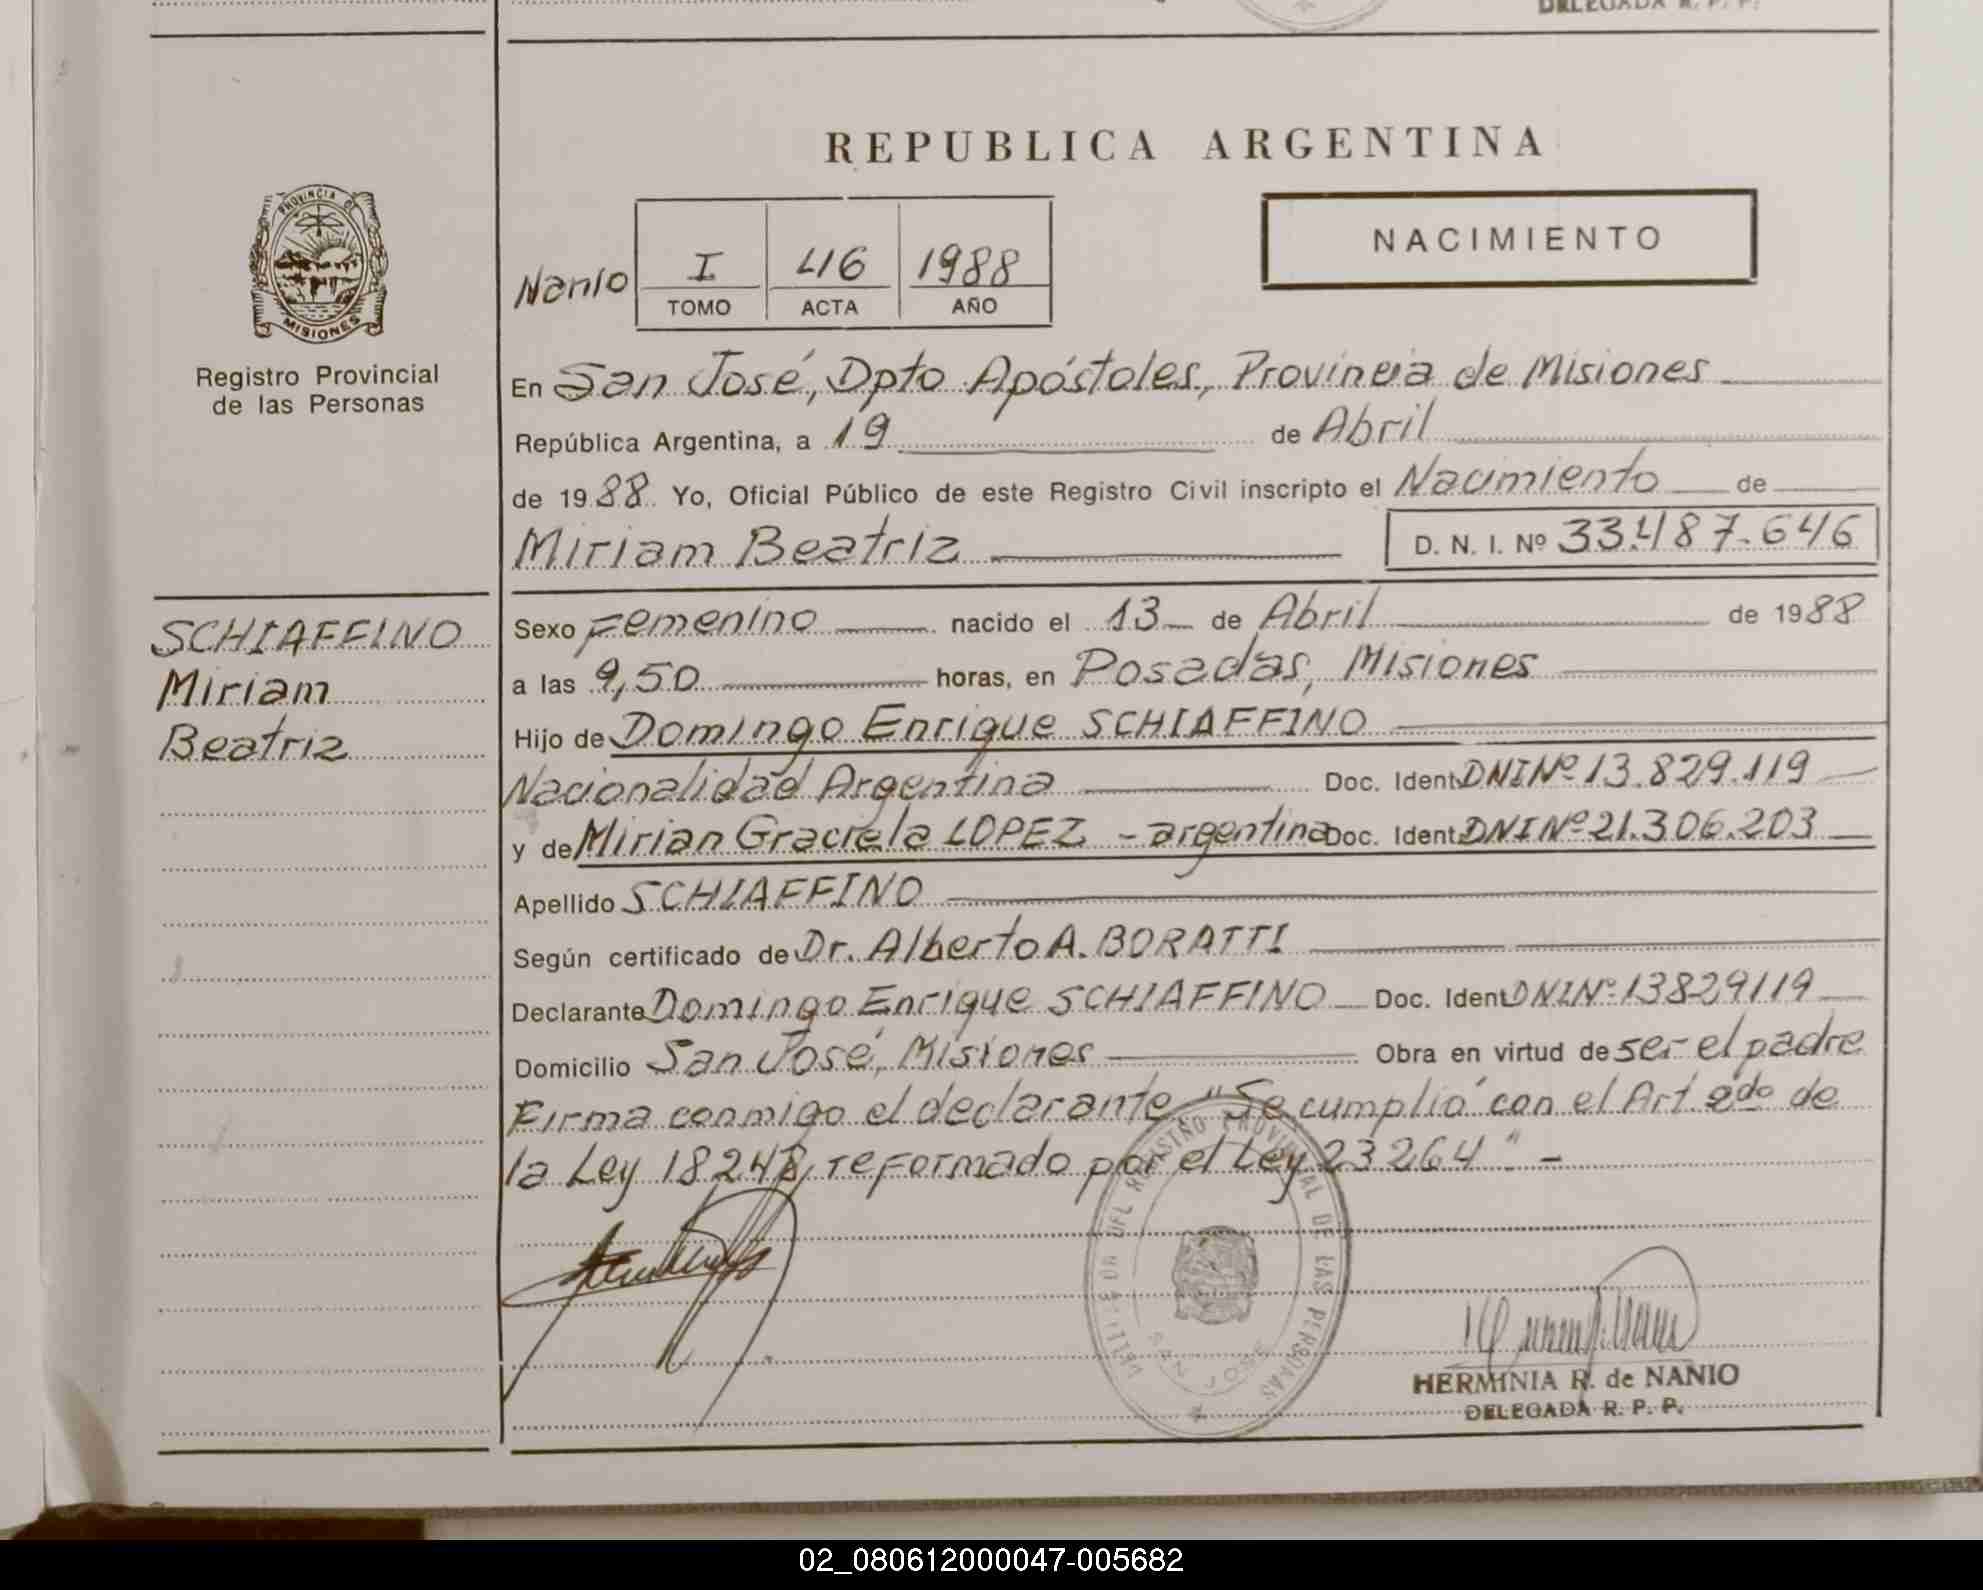 DELEGADA R. P. P.
REPUBLICA ARGENTINA
PROVINCIA DE
MISIONES
Registro Provincial
de las Personas
NACIMIENTO
Nanio I 46 1988
TOMO ACTA AÑO
En San José, Dpto Apóstoles, Provincia de Misiones
República Argentina, a 19 de Abril
de 1988 Yo, Oficial Público de este Registro Civil inscripto el Nacimiento de
Miriam Beatriz D. N. I. Nº 33.487.646
SCHIAFFINO
Miriam
Beatriz
Sexo Femenino nacido el 13 de Abril de 1988
a las 9,50 horas, en Posadas, Misiones
Hijo de Domingo Enrique SCHIAFFINO
Nacionalidad Argentina Doc. Ident DNI Nº 13.829.119
y de Mirian Graciela LOPEZ - argentina Doc. Ident DNI Nº 21.306.203
Apellido SCHIAFFINO
Según certificado de Dr. Alberto A. BORATTI
Declarante Domingo Enrique SCHIAFFINO Doc. Ident DNI Nº 13829119
Domicilio San José, Misiones Obra en virtud de ser el padre
Firma conmigo el declarante "Se cumplió con el Art 2do de
la Ley 18248, reformado por el Ley 23264" -
DEL REGISTRO PROVINCIAL DE LAS PERSONAS
SAN JOSE
HERMINIA R. de NANIO
DELEGADA R. P. P.
02_080612000047-005682